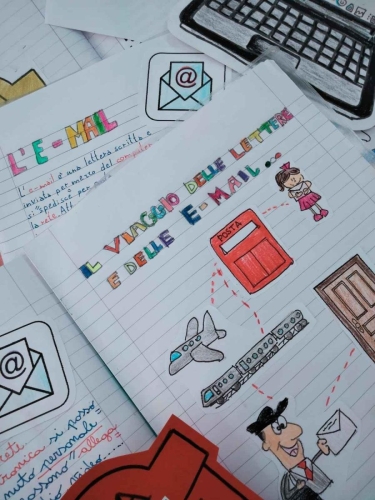 L'E-MAIL
L'e-mail è una lettera scritta e
inviata per mezzo del computer
si spedisce per
la rete
IL VIAGGIO DELLE LETTERE
E DELLE E-MAIL...
POSTA
@
@
rete
si posso
personale
allega
video